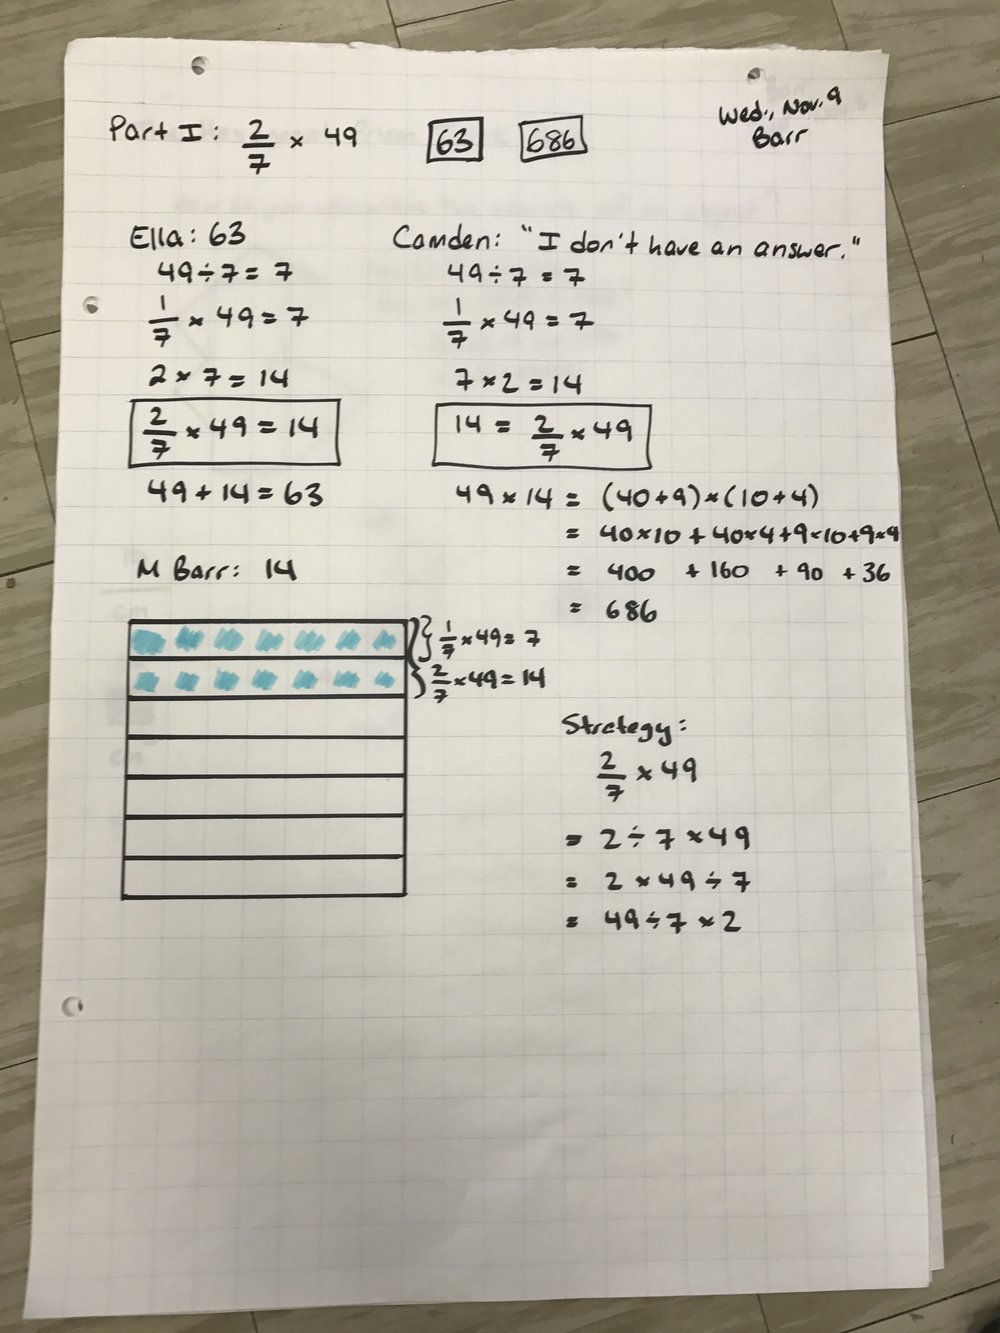 Wed., Nov. 9
Barr
Part I: 2/7 × 49 63 686
Ella: 63
49÷7 = 7
1/7 × 49 = 7
2 × 7 = 14
2/7 × 49 = 14
49 + 14 = 63
Camden: "I don't have an answer."
49÷7 = 7
1/7 × 49 = 7
7 × 2 = 14
14 = 2/7 × 49
49 × 14 = (40+9)×(10+4)
= 40×10 + 40×4+9×10+9×4
= 400 + 160 + 90 + 36
= 686
M Barr: 14
1/7 × 49 = 7
2/7 × 49 = 14
Strategy:
2/7 × 49
= 2 ÷ 7 × 49
= 2 × 49 ÷ 7
= 49 ÷ 7 × 2